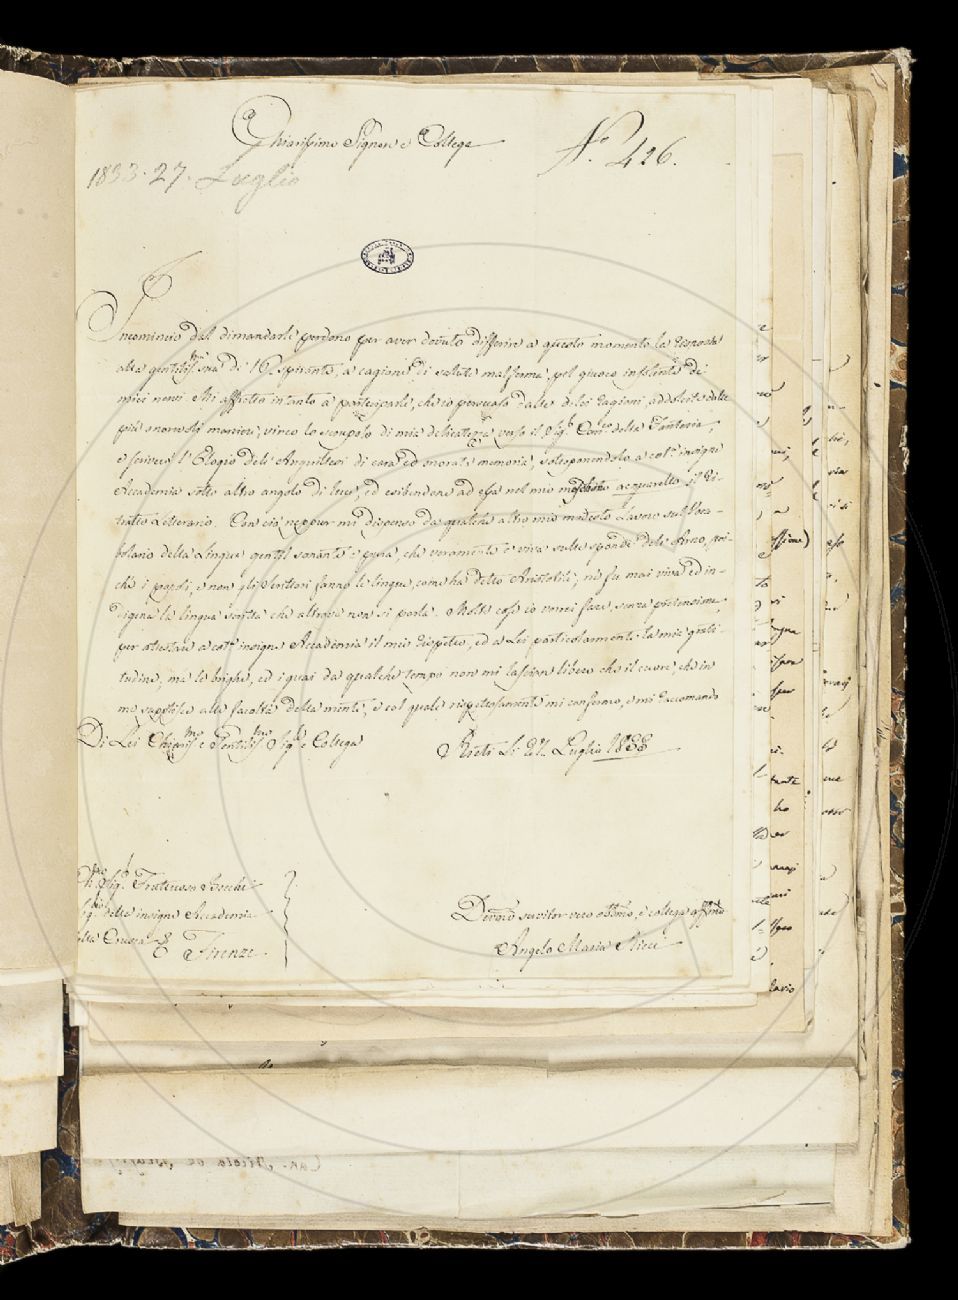 Chiarissimo Signore e Collega
N.° 426.
1833. 27. Luglio
Incomincio dal dimandarle perdono per aver dovuto differire a questo momento la risposta
alla gentilis.ma sua di 16. spirante, a cagione di salute malferma, pel giuoco insolente de'
miei nervi. Mi affretto intanto a parteciparle, che io persuaso dalle di lei ragioni, addolcite dalle
più amorevoli maniere, vinco lo scrupolo di mia delicatezza verso il Sig.r Con.e della Fantoria,
e scriverò l'Elogio dell'Anguillesi di cara ed onorata memoria, sottoponendolo a cot.a insigne
Accademia sotto altro angolo di luce, ed esibendone ad essa nel mio modesto acquarello il Ri-
tratto Letterario. Con ciò neppur mi dispenso da qualche altro mio modesto lavoro sul Voca-
bolario della Lingua gentil sonante e pura, che veramente è viva sulle sponde dell'Arno, poi-
chè i popoli, e non gli Scrittori fanno le lingue, come ha detto Aristotile, nè fu mai viva ed in-
digena la lingua scritta che altrove non si parla. Molte cose io vorrei fare, senza pretensione,
per attestare a cot.a insigne Accademia il mio rispetto, ed a Lei particolarmente la mia grati-
tudine, ma le brighe, ed i guai da qualche tempo non mi lascian libero che il cuore, che in
me supplisce alla facoltà della mente, e col quale rispettosamente mi confermo, e mi raccomando
Di Lei Chiaris.mo e Gentilis.mo Sig.e e Collega
Rieti Li 27. Luglio 1833
Sig.r Fruttuoso Becchi
della insigne Accademia
della Crusca
Firenze
Devmo servitor vero obbmo, e collega affmo
Angelo Maria Ricci